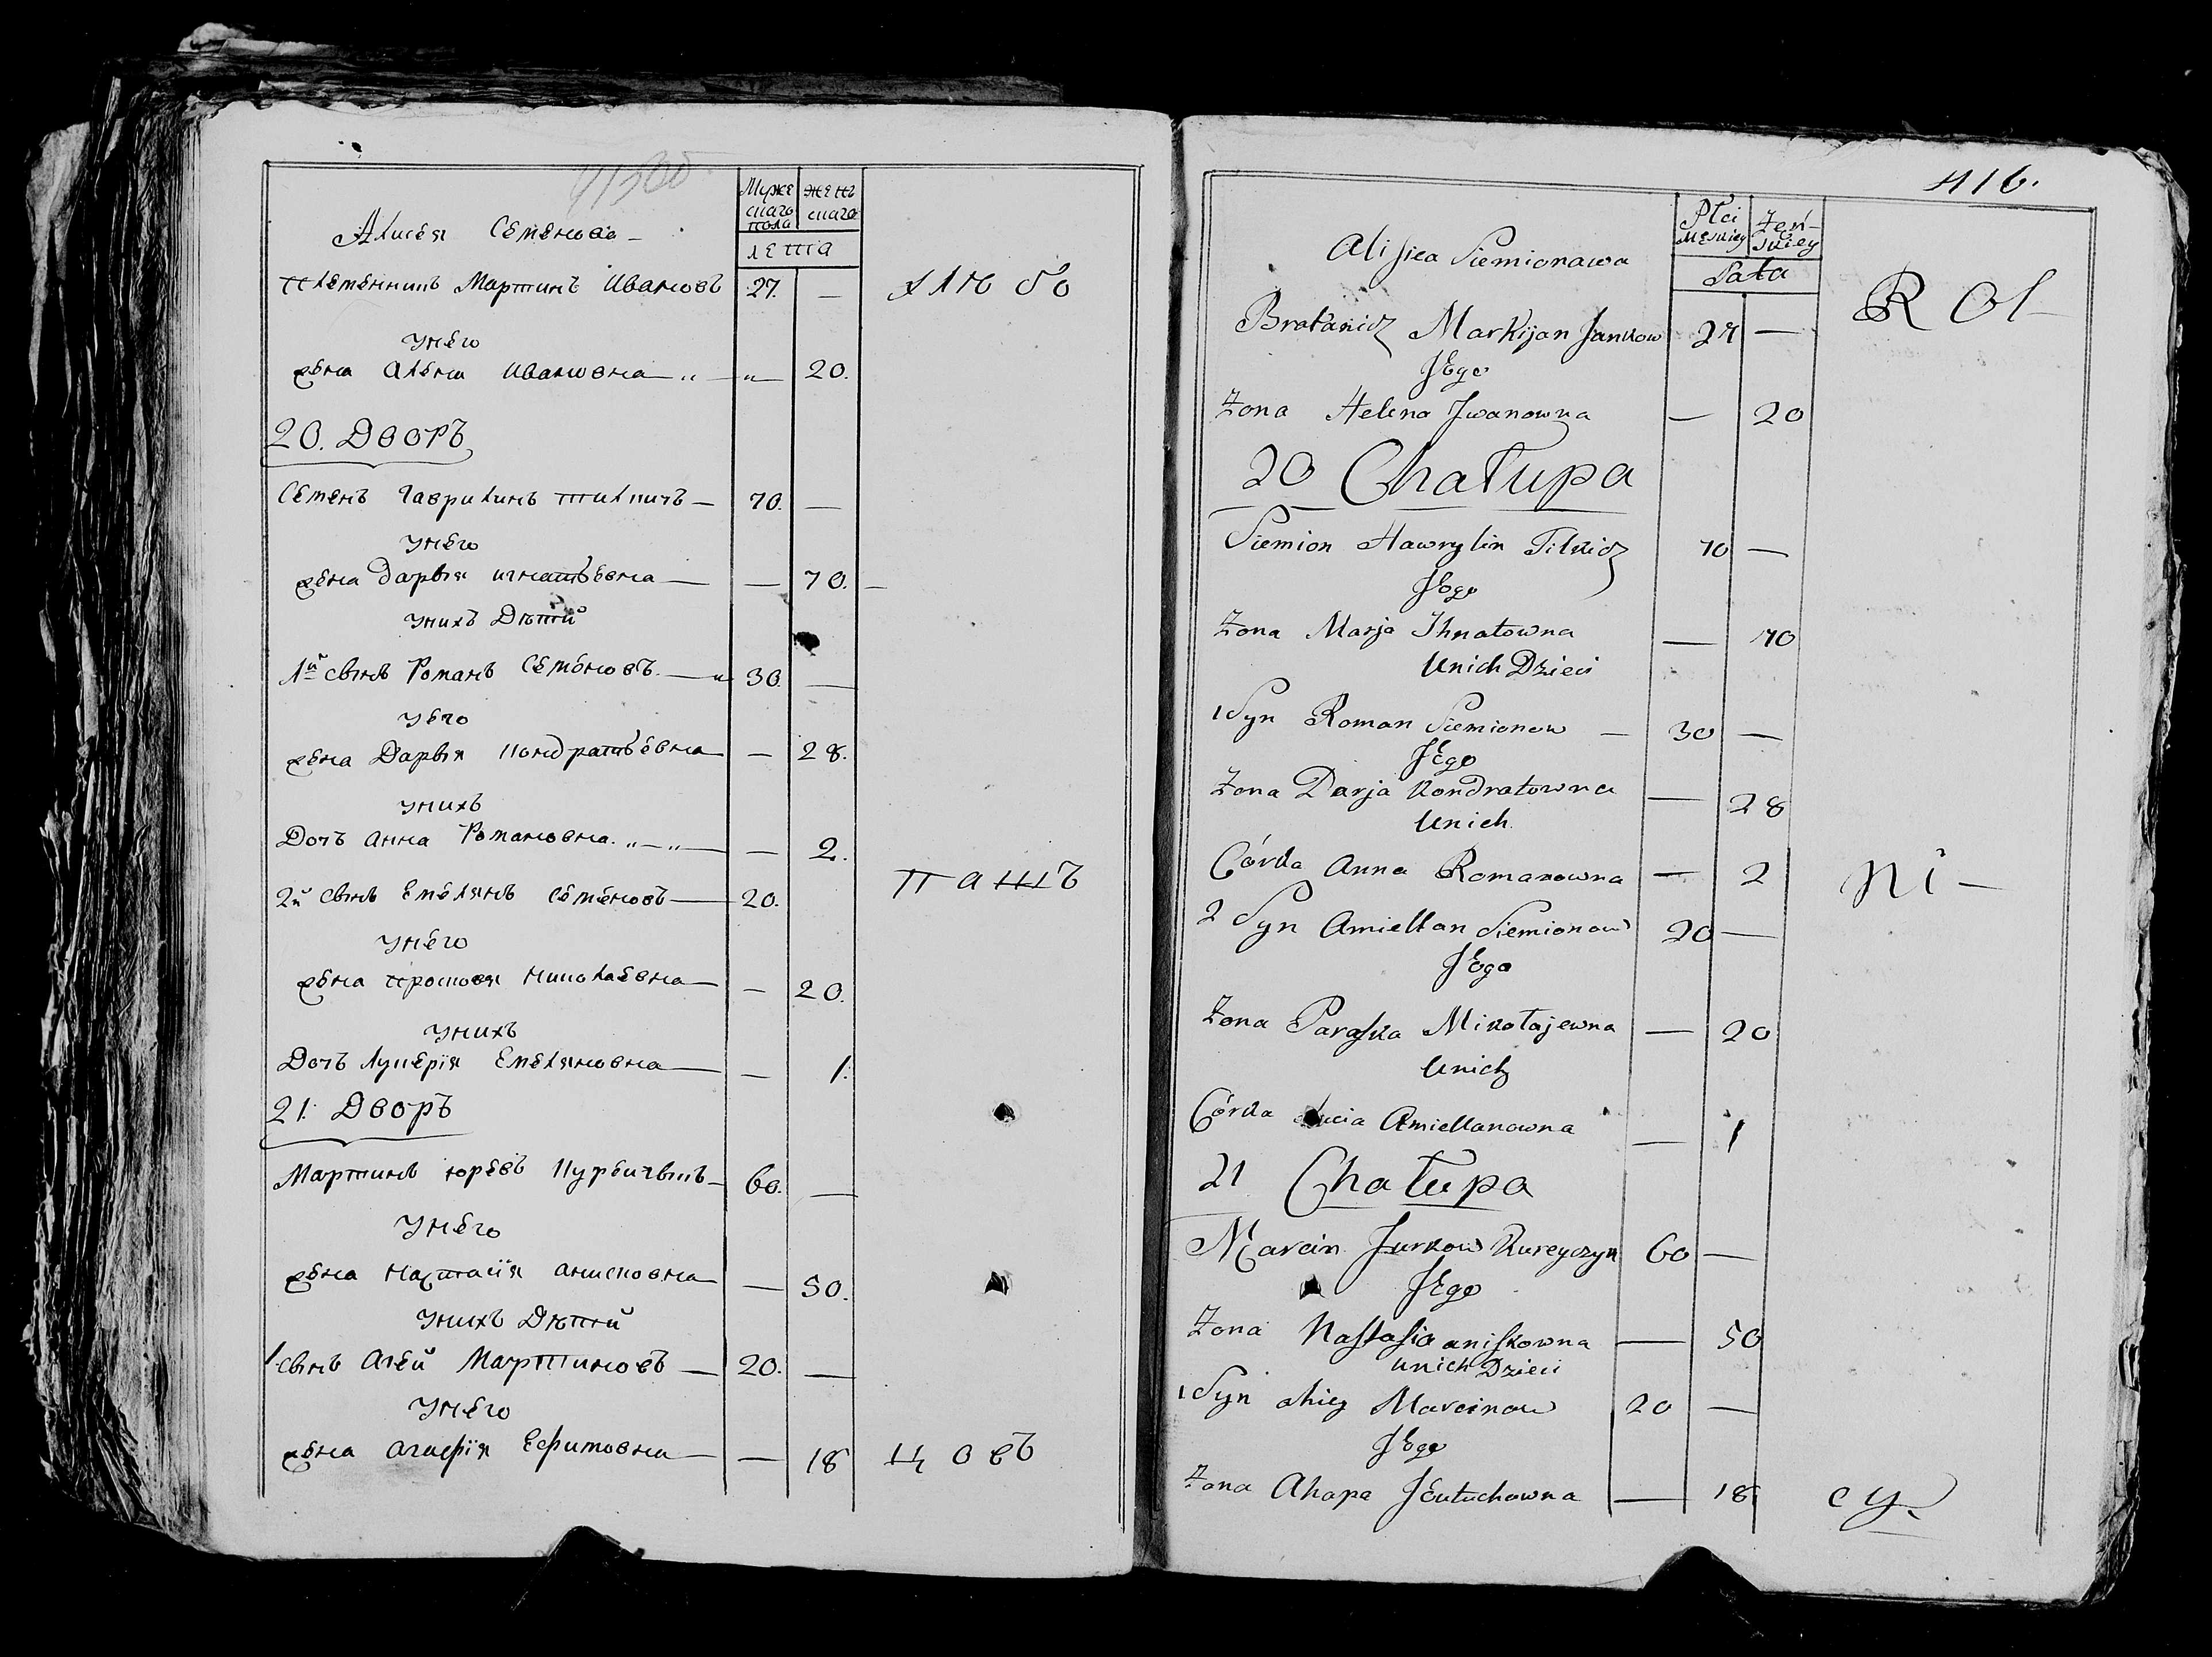 Муже
скаго
пола
женъ
скаго
лета
Алисея Семенова
племенникъ Мартинъ Ивановъ 27. —
хлѣбо
унего
жена Алена Ивановна — 20.
20. Дворъ
Семенъ Гаврилинъ тилкичъ — 70. —
унего
жена Дарья игнатьевна — — 70. —
унихъ Дѣтѣй
1й сынъ Романъ Семёновъ — 30. —
уего
жена Дарья кондратьевна — 28.
унихъ
Дочъ Анна Романовна — 2.
пашъ
2й сынъ Емелянъ семёновъ — 20.
унего
жена просковя николаевна — — 20.
унихъ
Дочъ лукерія Емеляновна — — 1.
21. Дворъ
Мартинъ юревъ — 60. —
унего
жена настасія анисковна — 50.
унихъ Дѣтѣй
1 сынъ Агей Мартиновъ — 20. —
унего
жена агафія Ефимовна — — 18
цовъ
416.
Płci
Męskiey
Żeń-
skiey
Lata
Alisiea Siemionawa
Rol-
Bratanicz Markijan Jankow 27 —
Jego
Żona Helena Jwanowna — 20
20 Chałupa
Siemion Hawrylin Tilkicz 70 —
Jego
Żona Marja Jhnatowna — 70
Unich Dzieci
1 Syn Roman Siemionow — 30 —
Jego
Żona Darja Kondratowna — 28
Unich
Córka Anna Romanowna — 2
ni —
2 Syn Amiellan Siemionow 20 —
Jego
Żona Paraska Mikołajewna — 20
Unich
Córka Amiellanowna — 1
21 Chałupa
Marcin Jurkow Kureyczyk 60 —
Jego
Żona Nastasia aniskowna — 50
unich Dzieci
1 Syn ahiey Marcinow 20 —
Jego
Żona Ahapa Jeutuchowna — 18
cy.